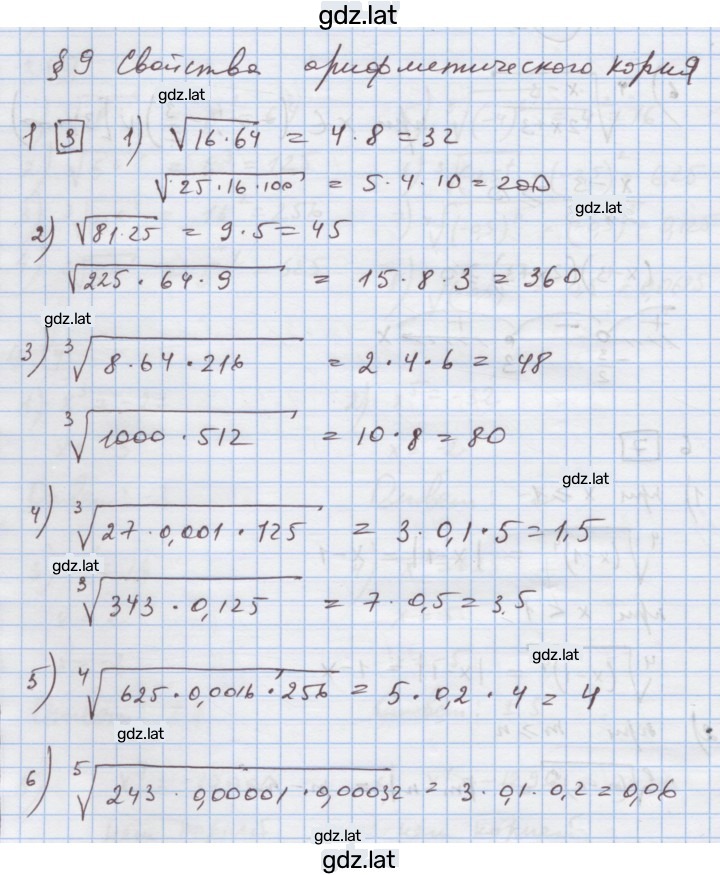 gdz.lat
§ 9 Свойства арифметического корня
gdz.lat
1 3 1) √16·64 = 4·8=32
√25·16·100 = 5·4·10=200
gdz.lat
2) √81·25 = 9·5=45
√225·64·9 = 15·8·3=360
gdz.lat
3) ³√8·64·216 = 2·4·6=48
³√1000·512 = 10·8=80
gdz.lat
4) ³√27·0,001·125 = 3·0,1·5=1,5
gdz.lat
³√343·0,125 = 7·0,5=3,5
gdz.lat
5) ⁴√625·0,0016·256 = 5·0,2·4=4
gdz.lat
6) ⁵√243·0,00001·0,00032 = 3·0,1·0,2=0,06
gdz.lat
gdz.lat